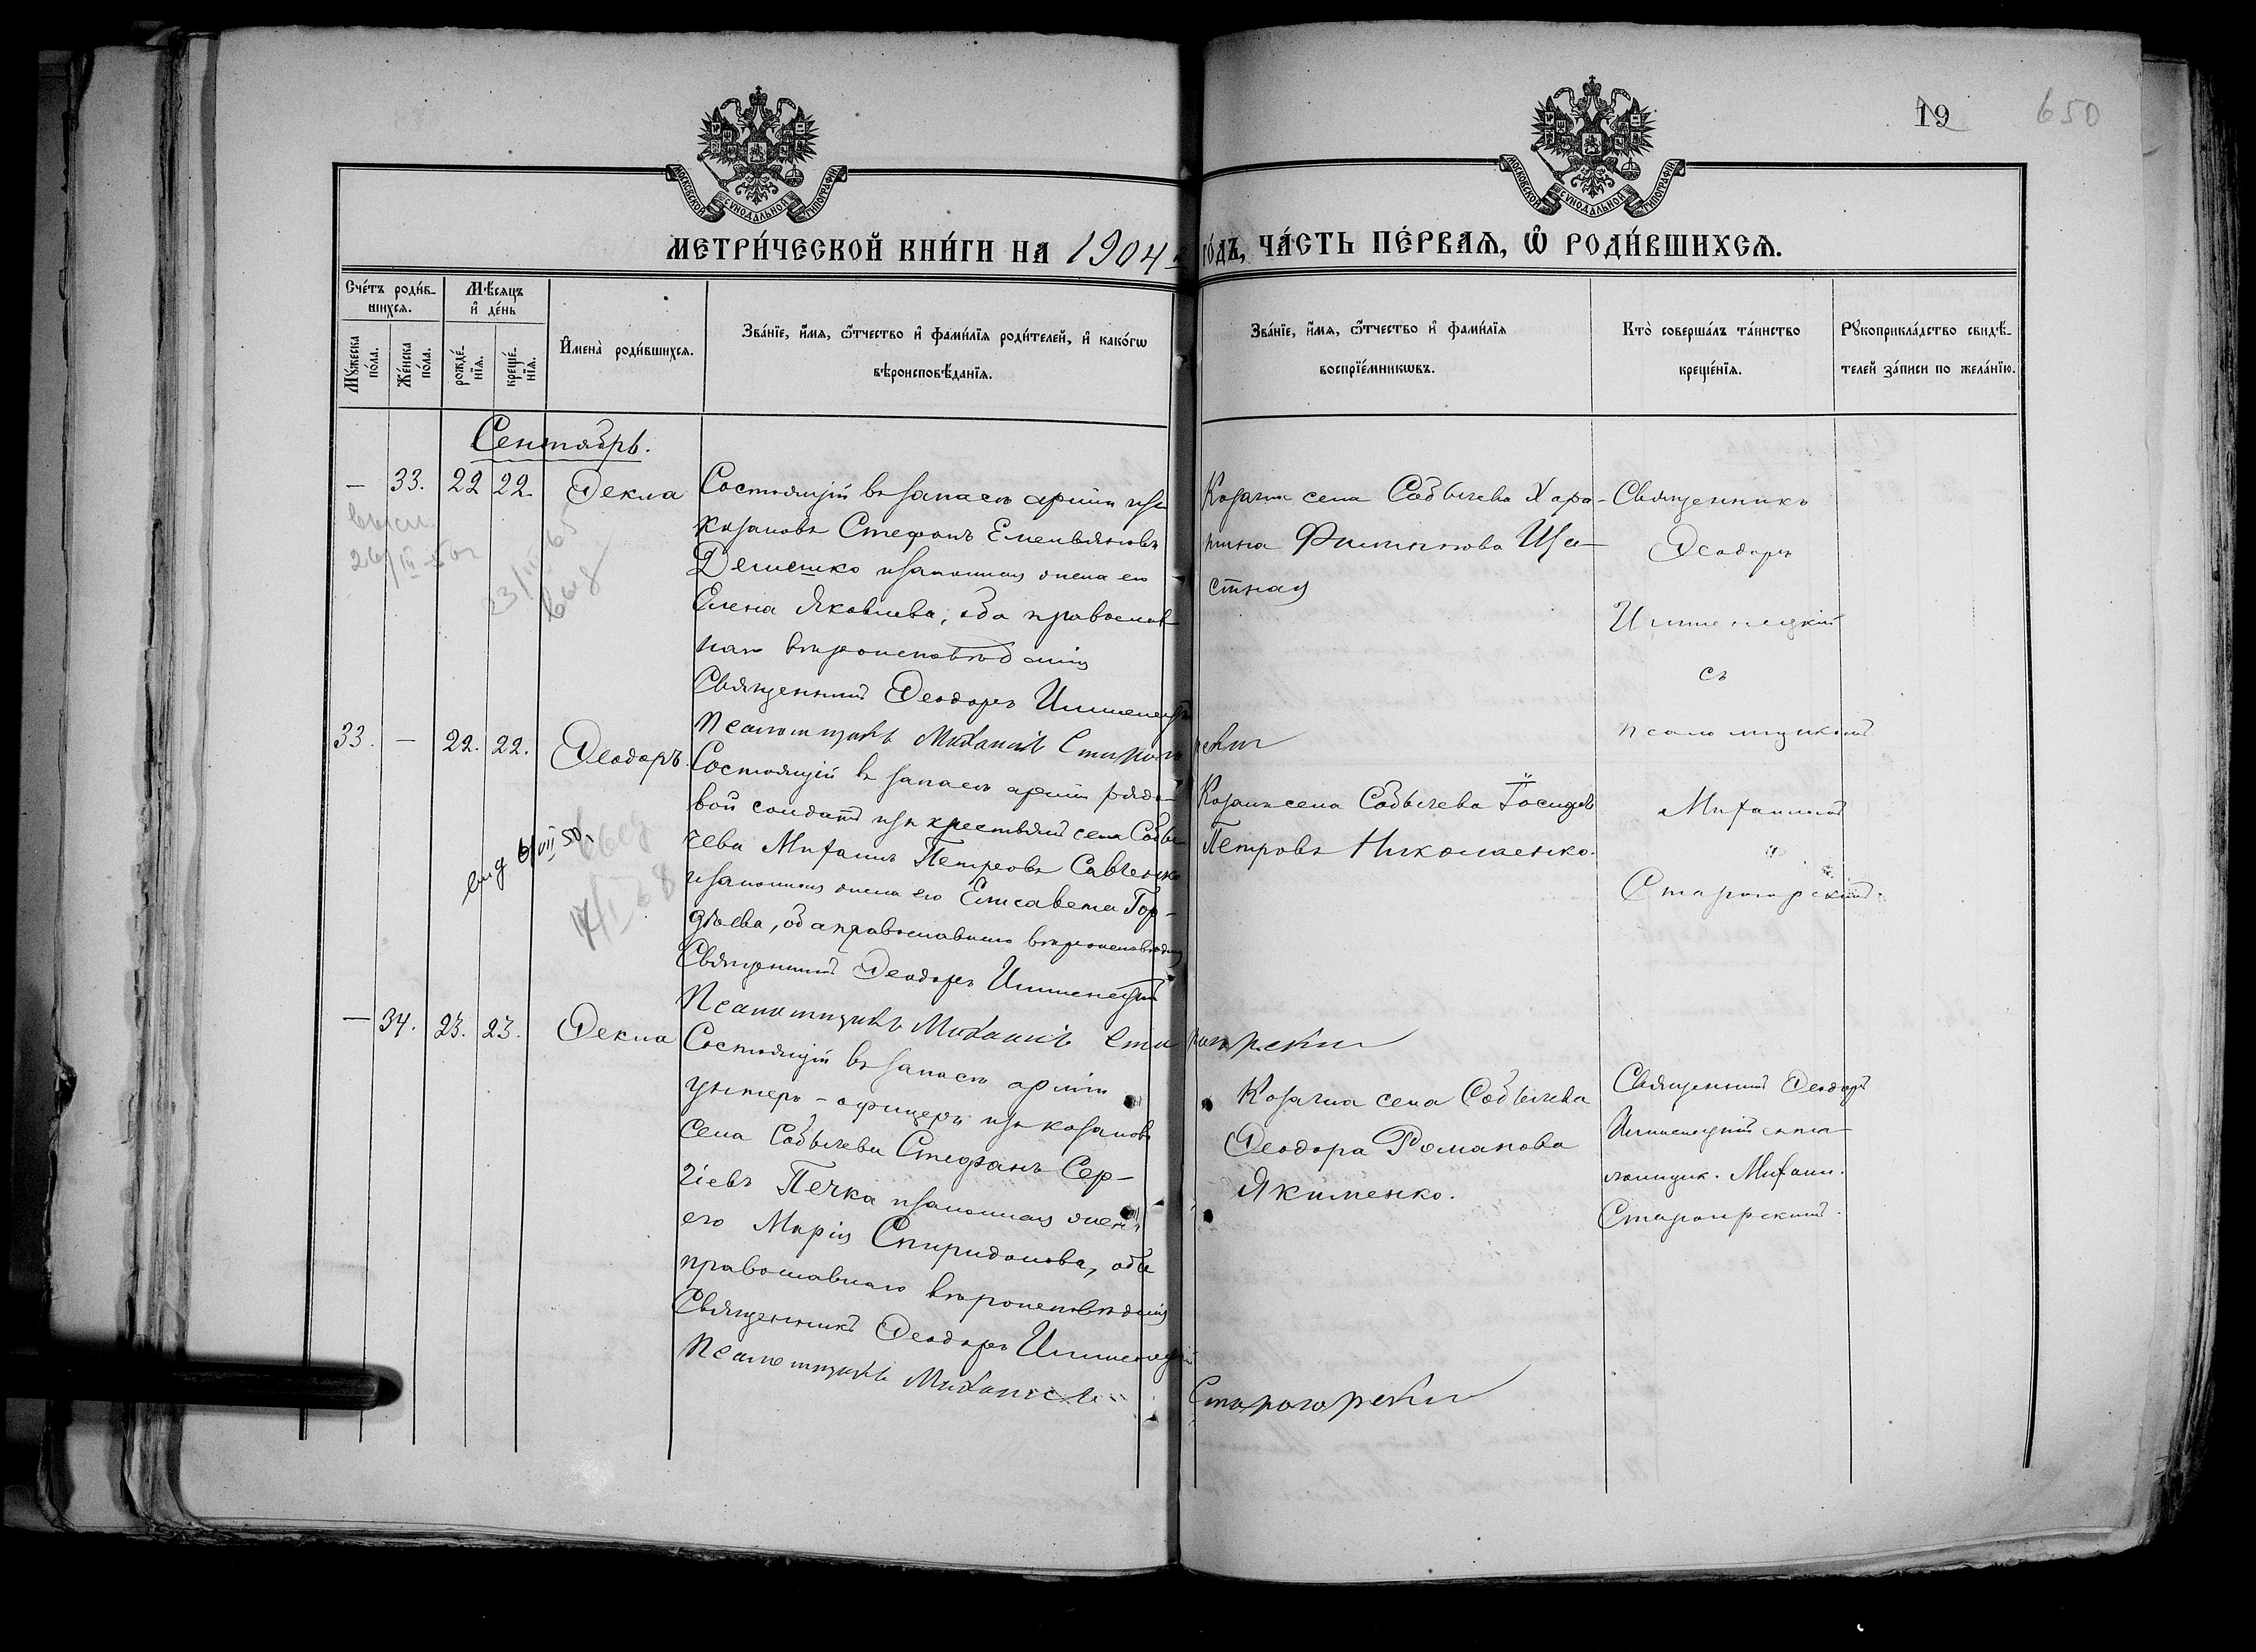 19
650
МОСКОВСКОЙ СУНОДАЛЬНОЙ ТИПОГРАФІИ
МОСКОВСКОЙ СУНОДАЛЬНОЙ ТИПОГРАФІИ
МЕТРИ́ЧЕСКОЙ КНИ́ГИ НА 1904 ГО́ДЪ, ЧА́СТЬ ПЕ́РВАѦ, Ѡ҆ РОДИ́ВШИХСѦ.
Сче́тъ роди́в-
шихсѧ.
Мꙋ́жеска по́ла.
Же́нска по́ла.
Мѣ́сѧцъ
и҆ де́нь
рожде́-
нїѧ.
креще́-
нїѧ.
И҆мена̀ роди́вшихсѧ.
Зва́нїе, и҆́мѧ, ѻ҆́тчество и҆ фами́лїѧ роди́телей, и҆ како́гѡ
вѣроисповѣ́данїѧ.
Зва́нїе, и҆́мѧ, ѻ҆́тчество и҆ фами́лїѧ
воспрїе́мникѡвъ.
Кто̀ соверша́лъ та́инство
креще́нїѧ.
Рꙋкоприкла́дство свидѣ́-
телей за́писи по жела́нїю.
Сентябрь.
— 33. 22 22. Ѳекла
Состоящій въ запасѣ арміи изъ
козаковъ Стефанъ Емельяновъ
Делешко и законная жена его
Елена Яковлева, оба православ
наго вѣроисповѣданія
Священникъ Ѳеодоръ
Псаломщикъ Михаилъ Старогорскій
Козачка села Собычева Хари-
тина Филиппова Ща-
стная
Священникъ
Ѳеодоръ
съ
псаломщикомъ
Михаиломъ
Старогорскимъ.
33. — 22. 22. Ѳеодоръ.
Состоящій въ запасѣ арміи рядо-
вой солдатъ изъ крестьянъ села Собы
чева Михаилъ Петровъ Савченко
и законная жена его Елисавета Гор-
дѣева, оба православнаго вѣроисповѣданія
Священникъ Ѳеодоръ
Псаломщикъ Михаилъ Старогорскій
Козакъ села Собычева Іосифъ
Петровъ Николаенко.
— 34. 23. 23. Ѳекла
Состоящій въ запасѣ арміи
унтеръ-офицеръ изъ козаковъ
села Собычева Стефанъ Сер-
гіевъ Печка и законная жена
его Марія Спиридонова, оба
православнаго вѣроисповѣданія
Священникъ Ѳеодоръ
Псаломщикъ Михаилъ Старогорскій
Козачка села Собычева
Ѳеодора Романова
Якименко.
Священникъ Ѳеодоръ
ломщик. Михаил.
Старогорскимъ.